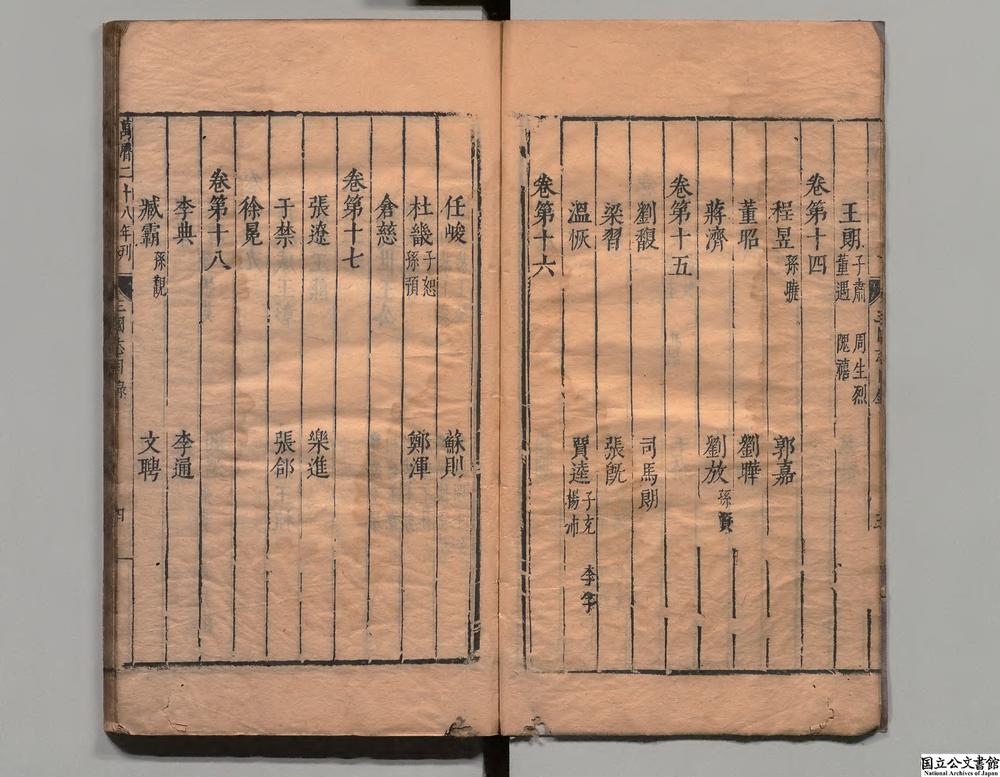 王朗 子肅 董遇 周生烈 隗禧
卷第十四
程昱 孫曉 郭嘉
董昭 劉曄
蔣濟 劉放 孫資
卷第十五
劉馥 司馬朗
梁習 張旣
溫恢 賈逵 子充 楊沛 李孚
卷第十六
任峻 蘇則
杜畿 子恕 孫預 鄭渾
倉慈
卷第十七
張遼 樂進
于禁 張郃
徐晃
卷第十八
李典 李通
臧霸 孫觀 文聘
萬曆二十八年刊
三國志目錄
四
国立公文書館
National Archives of Japan